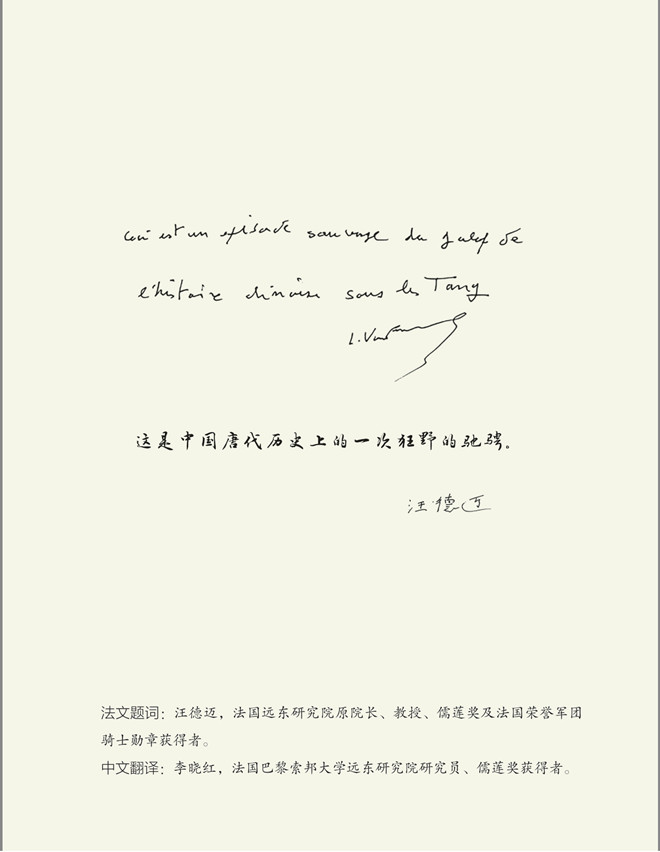 Ceci est un épisode sauvage du galop de
l'histoire chinoise sous les Tang
L. Vandermeersch
这是中国唐代历史上的一次狂野的驰骋。
汪德迈
法文题词：汪德迈，法国远东研究院原院长、教授、儒莲奖及法国荣誉军团
骑士勋章获得者。
中文翻译：李晓红，法国巴黎索邦大学远东研究院研究员、儒莲奖获得者。